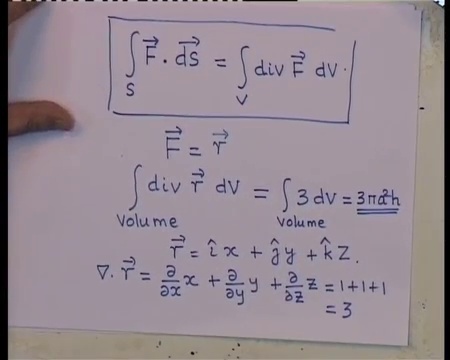 ∫_S F⃗ . d⃗s = ∫_V div F⃗ dV.
F⃗ = r⃗
∫_Volume div r⃗ dV = ∫_Volume 3 dV = 3πa²h
r⃗ = îx + ĵy + k̂z.
∇. r⃗ = ∂/∂x x + ∂/∂y y + ∂/∂z z = 1+1+1
= 3